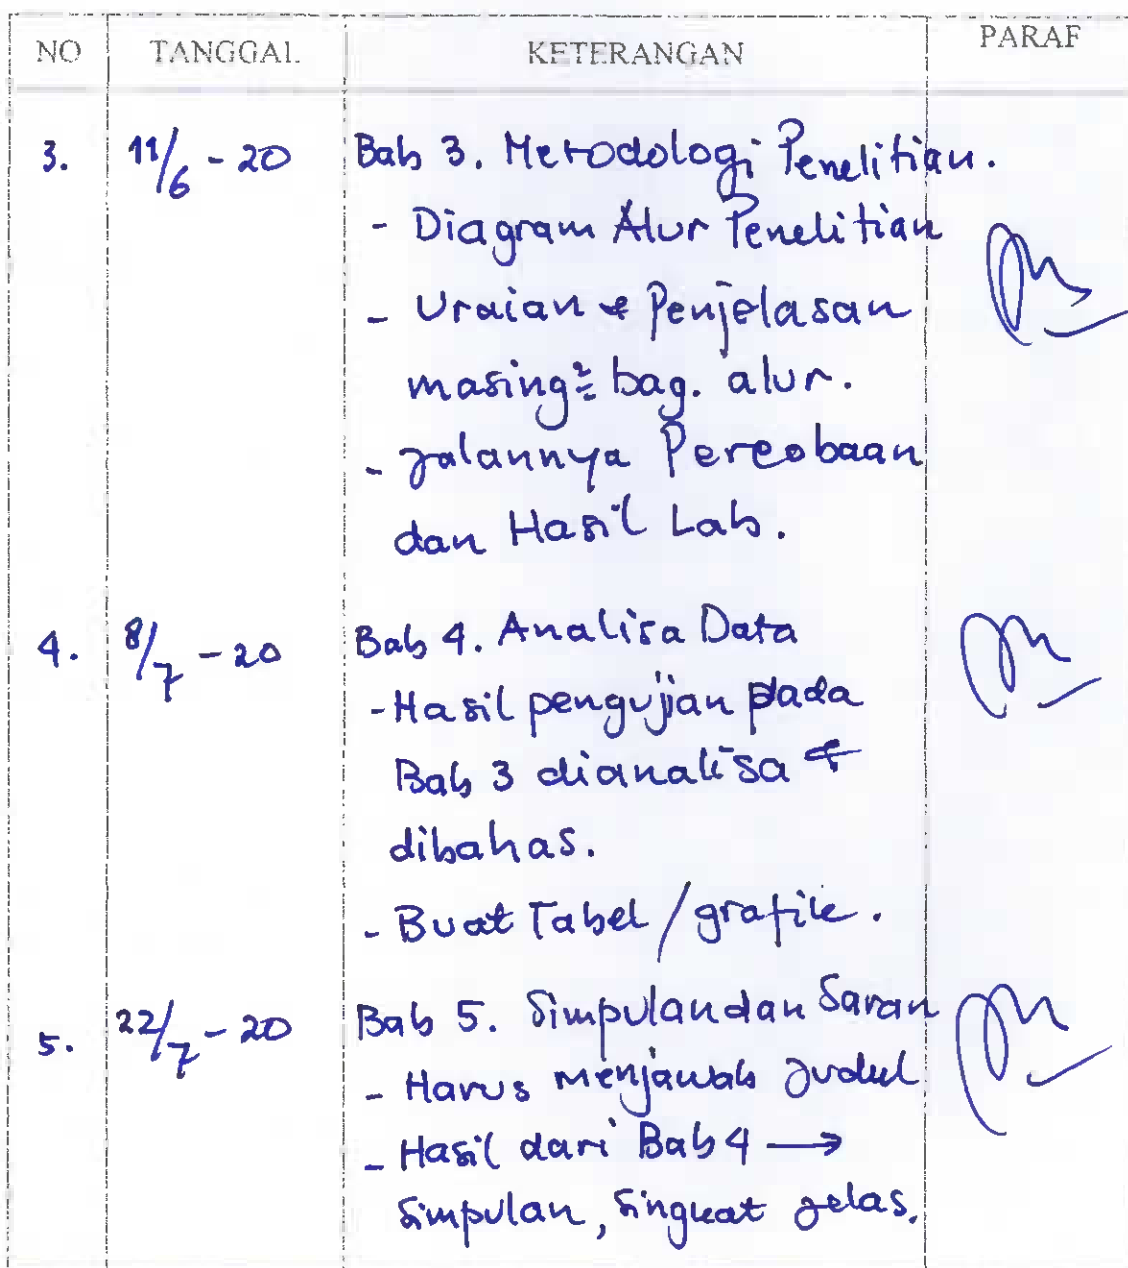 NO TANGGAL KETERANGAN PARAF
3. 11/6 - 20 Bab 3. Metodologi Penelitian.
- Diagram Alur Penelitian
- Uraian & Penjelasan
masing² bag. alur.
- Jalannya Percobaan
dan Hasil Lab.
4. 8/7 - 20 Bab 4. Analisa Data
- Hasil pengujian pada
Bab 3 dianalisa &
dibahas.
- Buat Tabel / grafik.
5. 22/7 - 20 Bab 5. Simpulan dan Saran
- Harus menjawab Judul
- Hasil dari Bab 4 →
Simpulan, Singkat Jelas.